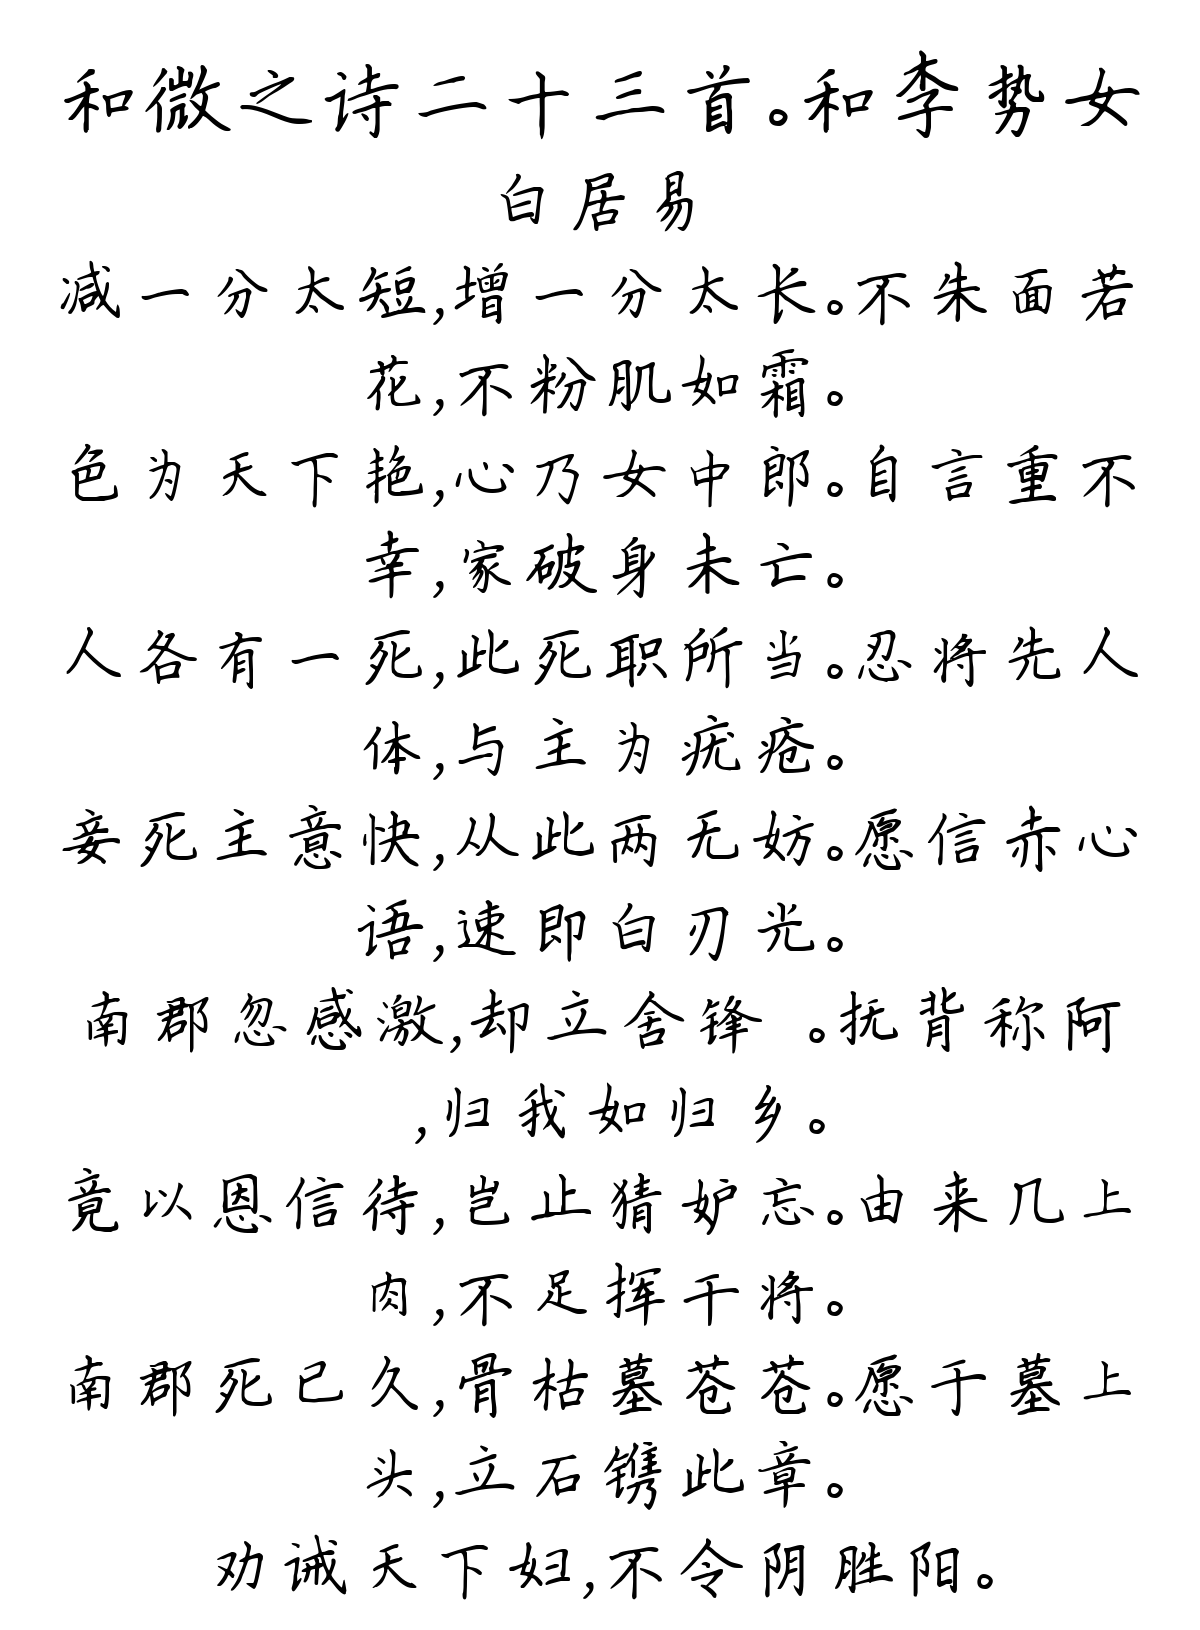 和微之诗二十三首。和李势女
白居易
减一分太短,增一分太长。不朱面若
花,不粉肌如霜。
色为天下艳,心乃女中郎。自言重不
幸,家破身未亡。
人各有一死,此死职所当。忍将先人
体,与主为疣疮。
妾死主意快,从此两无妨。愿信赤心
语,速即白刃光。
南郡忽感激,却立舍锋 。抚背称阿
,归我如归乡。
竟以恩信待,岂止猜妒忘。由来几上
肉,不足挥干将。
南郡死已久,骨枯墓苍苍。愿于墓上
头,立石镌此章。
劝诫天下妇,不令阴胜阳。